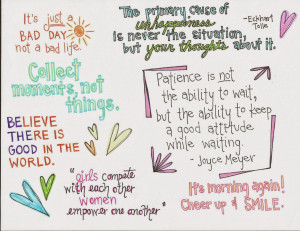 It's just a
BAD DAY,
not a bad life.
The primary cause of
unhappiness
is never the situation,
but your thoughts about it.
-Eckhart
Tolle
Collect
moments, not
things.
Patience is not
the ability to wait,
but the ability to keep
a good attitude
while waiting.
- Joyce Meyer
BELIEVE
THERE IS
GOOD IN THE
WORLD.
"girls compete
with each other
women
empower one another"
It's morning again!
Cheer up & SMILE.